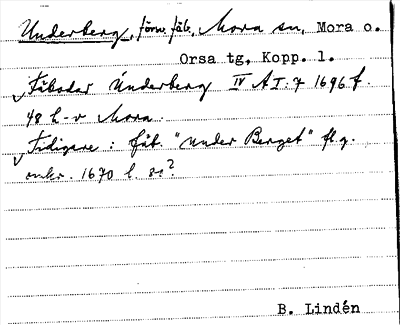 Underberg, förv. fäb., Mora sn, Mora o.
Orsa tg, Kopp. l.
Fäbodar Underberg IV A I. 7 1696 f.
48 h-v Mora.
Tidigare: fäb. "under Berget" fl. g.
omkr. 1670 l. 80?
B. Lindén